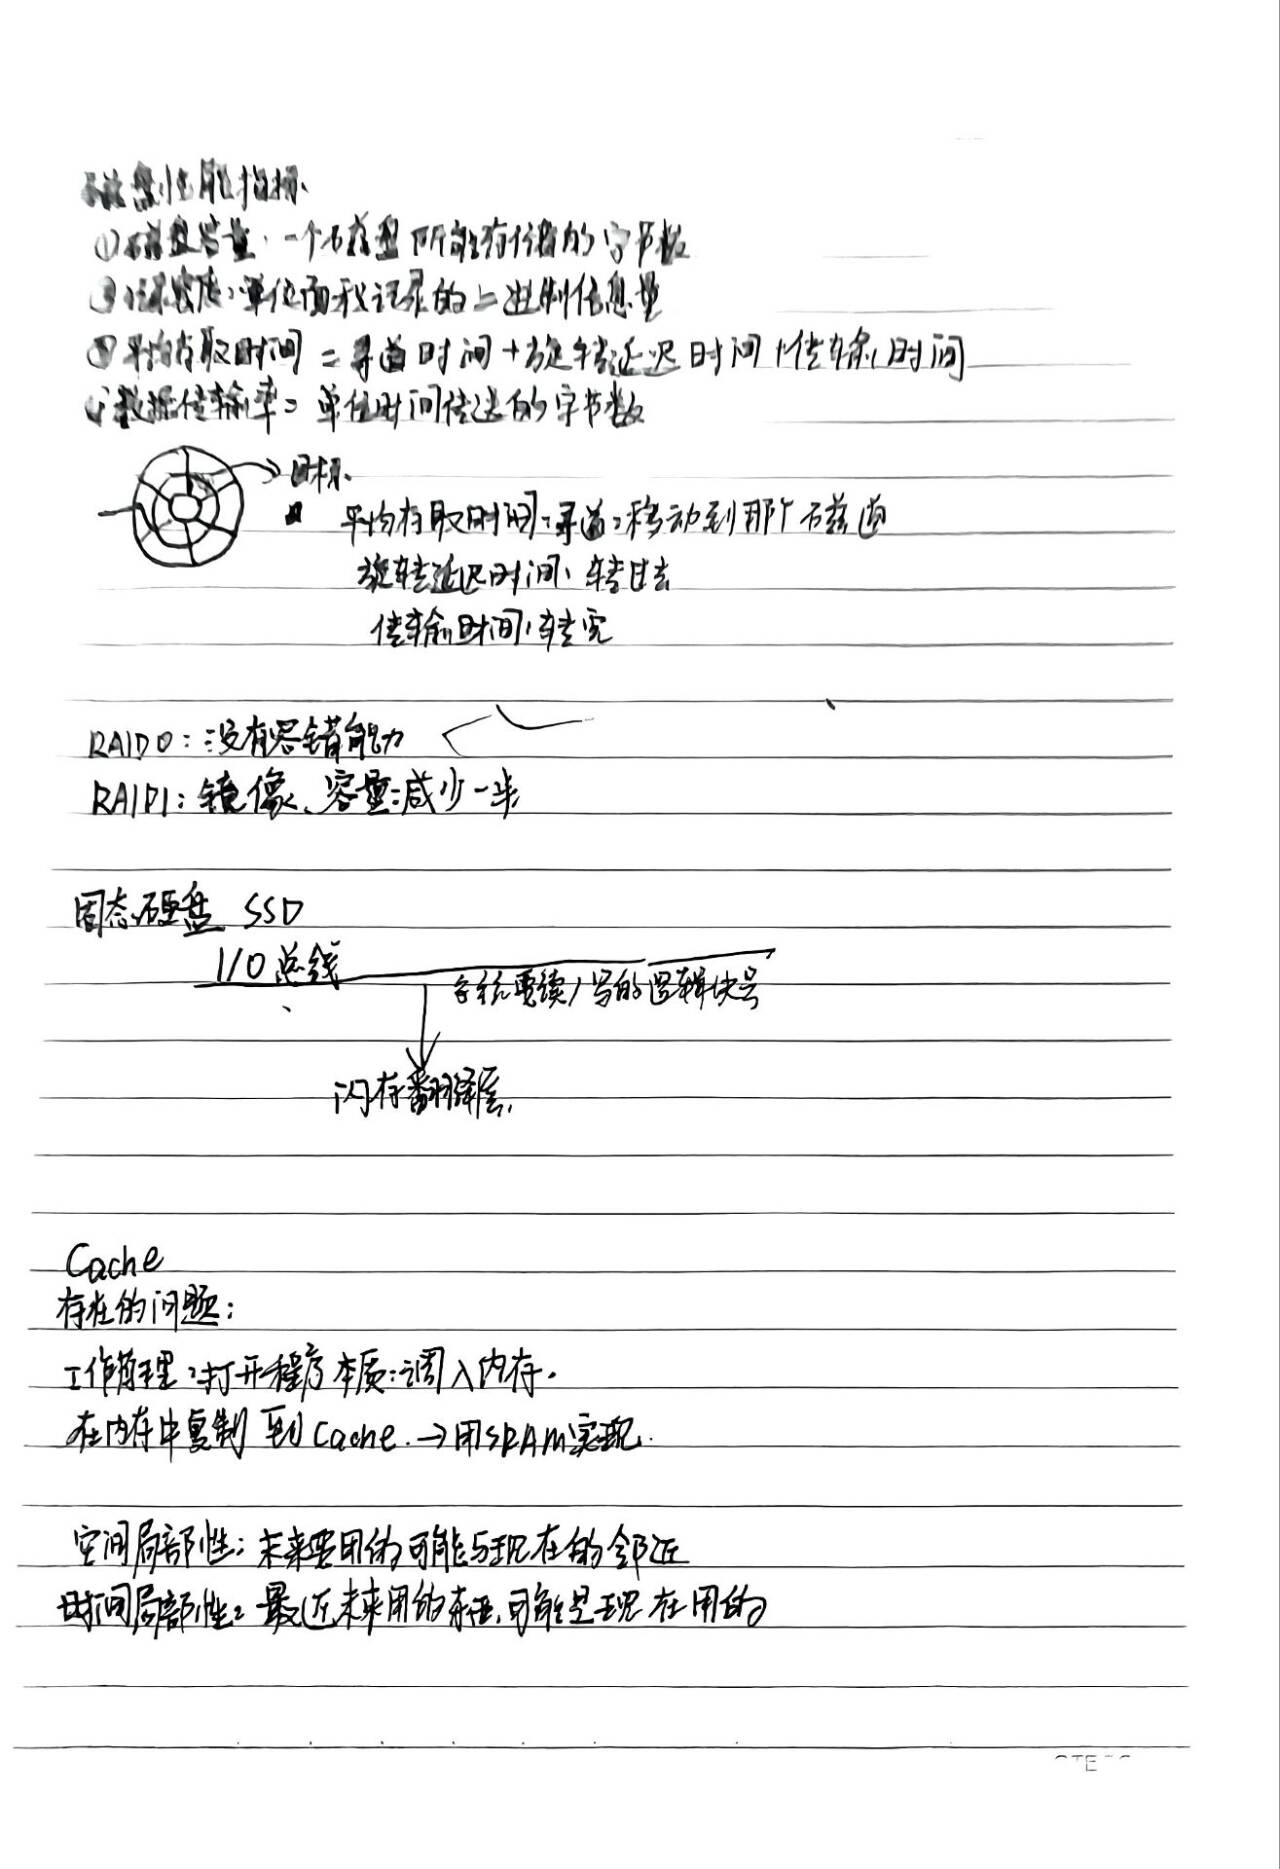 磁盘性能指标:
①磁盘容量:一个磁盘所能存储的字节数
②记录密度:单位面积记录的二进制信息量
③平均存取时间=寻道时间+旋转延迟时间+传输时间
④数据传输率:单位时间传送的字节数
目标.
平均存取时间:寻道:移动到那个磁道
旋转延迟时间:转过去
传输时间:转完
RAID0:没有容错能力
RAID1:镜像、容量减少一半
固态硬盘 SSD
I/O总线
系统要读/写的逻辑块号
闪存翻译层.
Cache
存在的问题:
工作原理:打开程序本质:调入内存.
在内存中复制到Cache.→用SRAM实现.
空间局部性:未来要用的可能与现在的邻近
时间局部性:最近未来用的东西,可能是现在用的